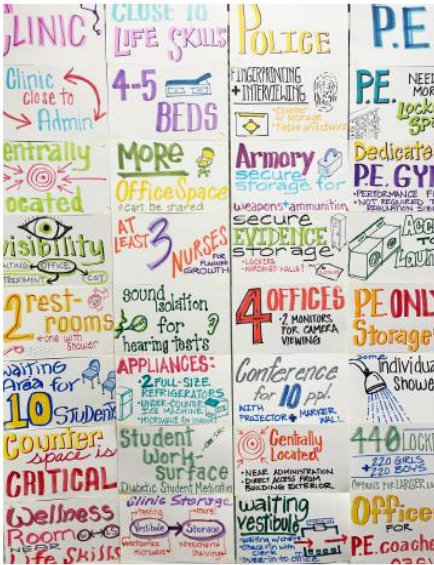 CLINIC
Clinic
close to
Admin
entrally
ocated
visibility
WAITING
OFFICE
TREATMENT
COT
2 rest-
rooms
one with
shower
Waiting
Area for
10 Student
Counter
space is
CRITICAL
Wellness
Room
NEAR
Life Skills
CLOSE TO
LIFE SKILLS
4-5
BEDS
MORE
Office Space
can be shared
AT
LEAST
3 NURSES
FOR
PLANNED
GROWTH
sound
Isolation
for
hearing tests
APPLIANCES:
• 2 FULL-SIZE
REFRIGERATORS
• UNDER-COUNTER
ICE MACHINE
• MICROWAVE
Student
Work-
surface
Diabetic Student Medication
Clinic Storage
Vestibule
Storage
microwave
shelving
POLICE
FINGERPRINTING
+ INTERVIEWING
• Counter
w/ storage
• Table and chairs
Armory
secure
storage for
weapons + ammunition
secure
EVIDENCE
storage
• LOCKERS
• HARDENED WALLS?
4 OFFICES
• 2 MONITORS
FOR CAMERA
VIEWING
Conference
for 10 ppl.
WITH
PROJECTOR + MARKER
WALL
Centrally
Located
• NEAR ADMINISTRATION
• DIRECT ACCESS FROM
BUILDING EXTERIOR
waiting
vestibule
check-in with
clerk
P.E
P.E. NEED
MOR
Locke
Spa
Dedicate
P.E. GY
• PERFORMANCE F
• NOT REQUIRED T
REGULATION SIZE
Acc
TO
Laun
P.E ONL
Storage
some
Individua
Showe
440 LOCK
220 GIRLS
+ 220 BOYS
OPTIONS FOR LARGER
Office
FOR
P.E. coache